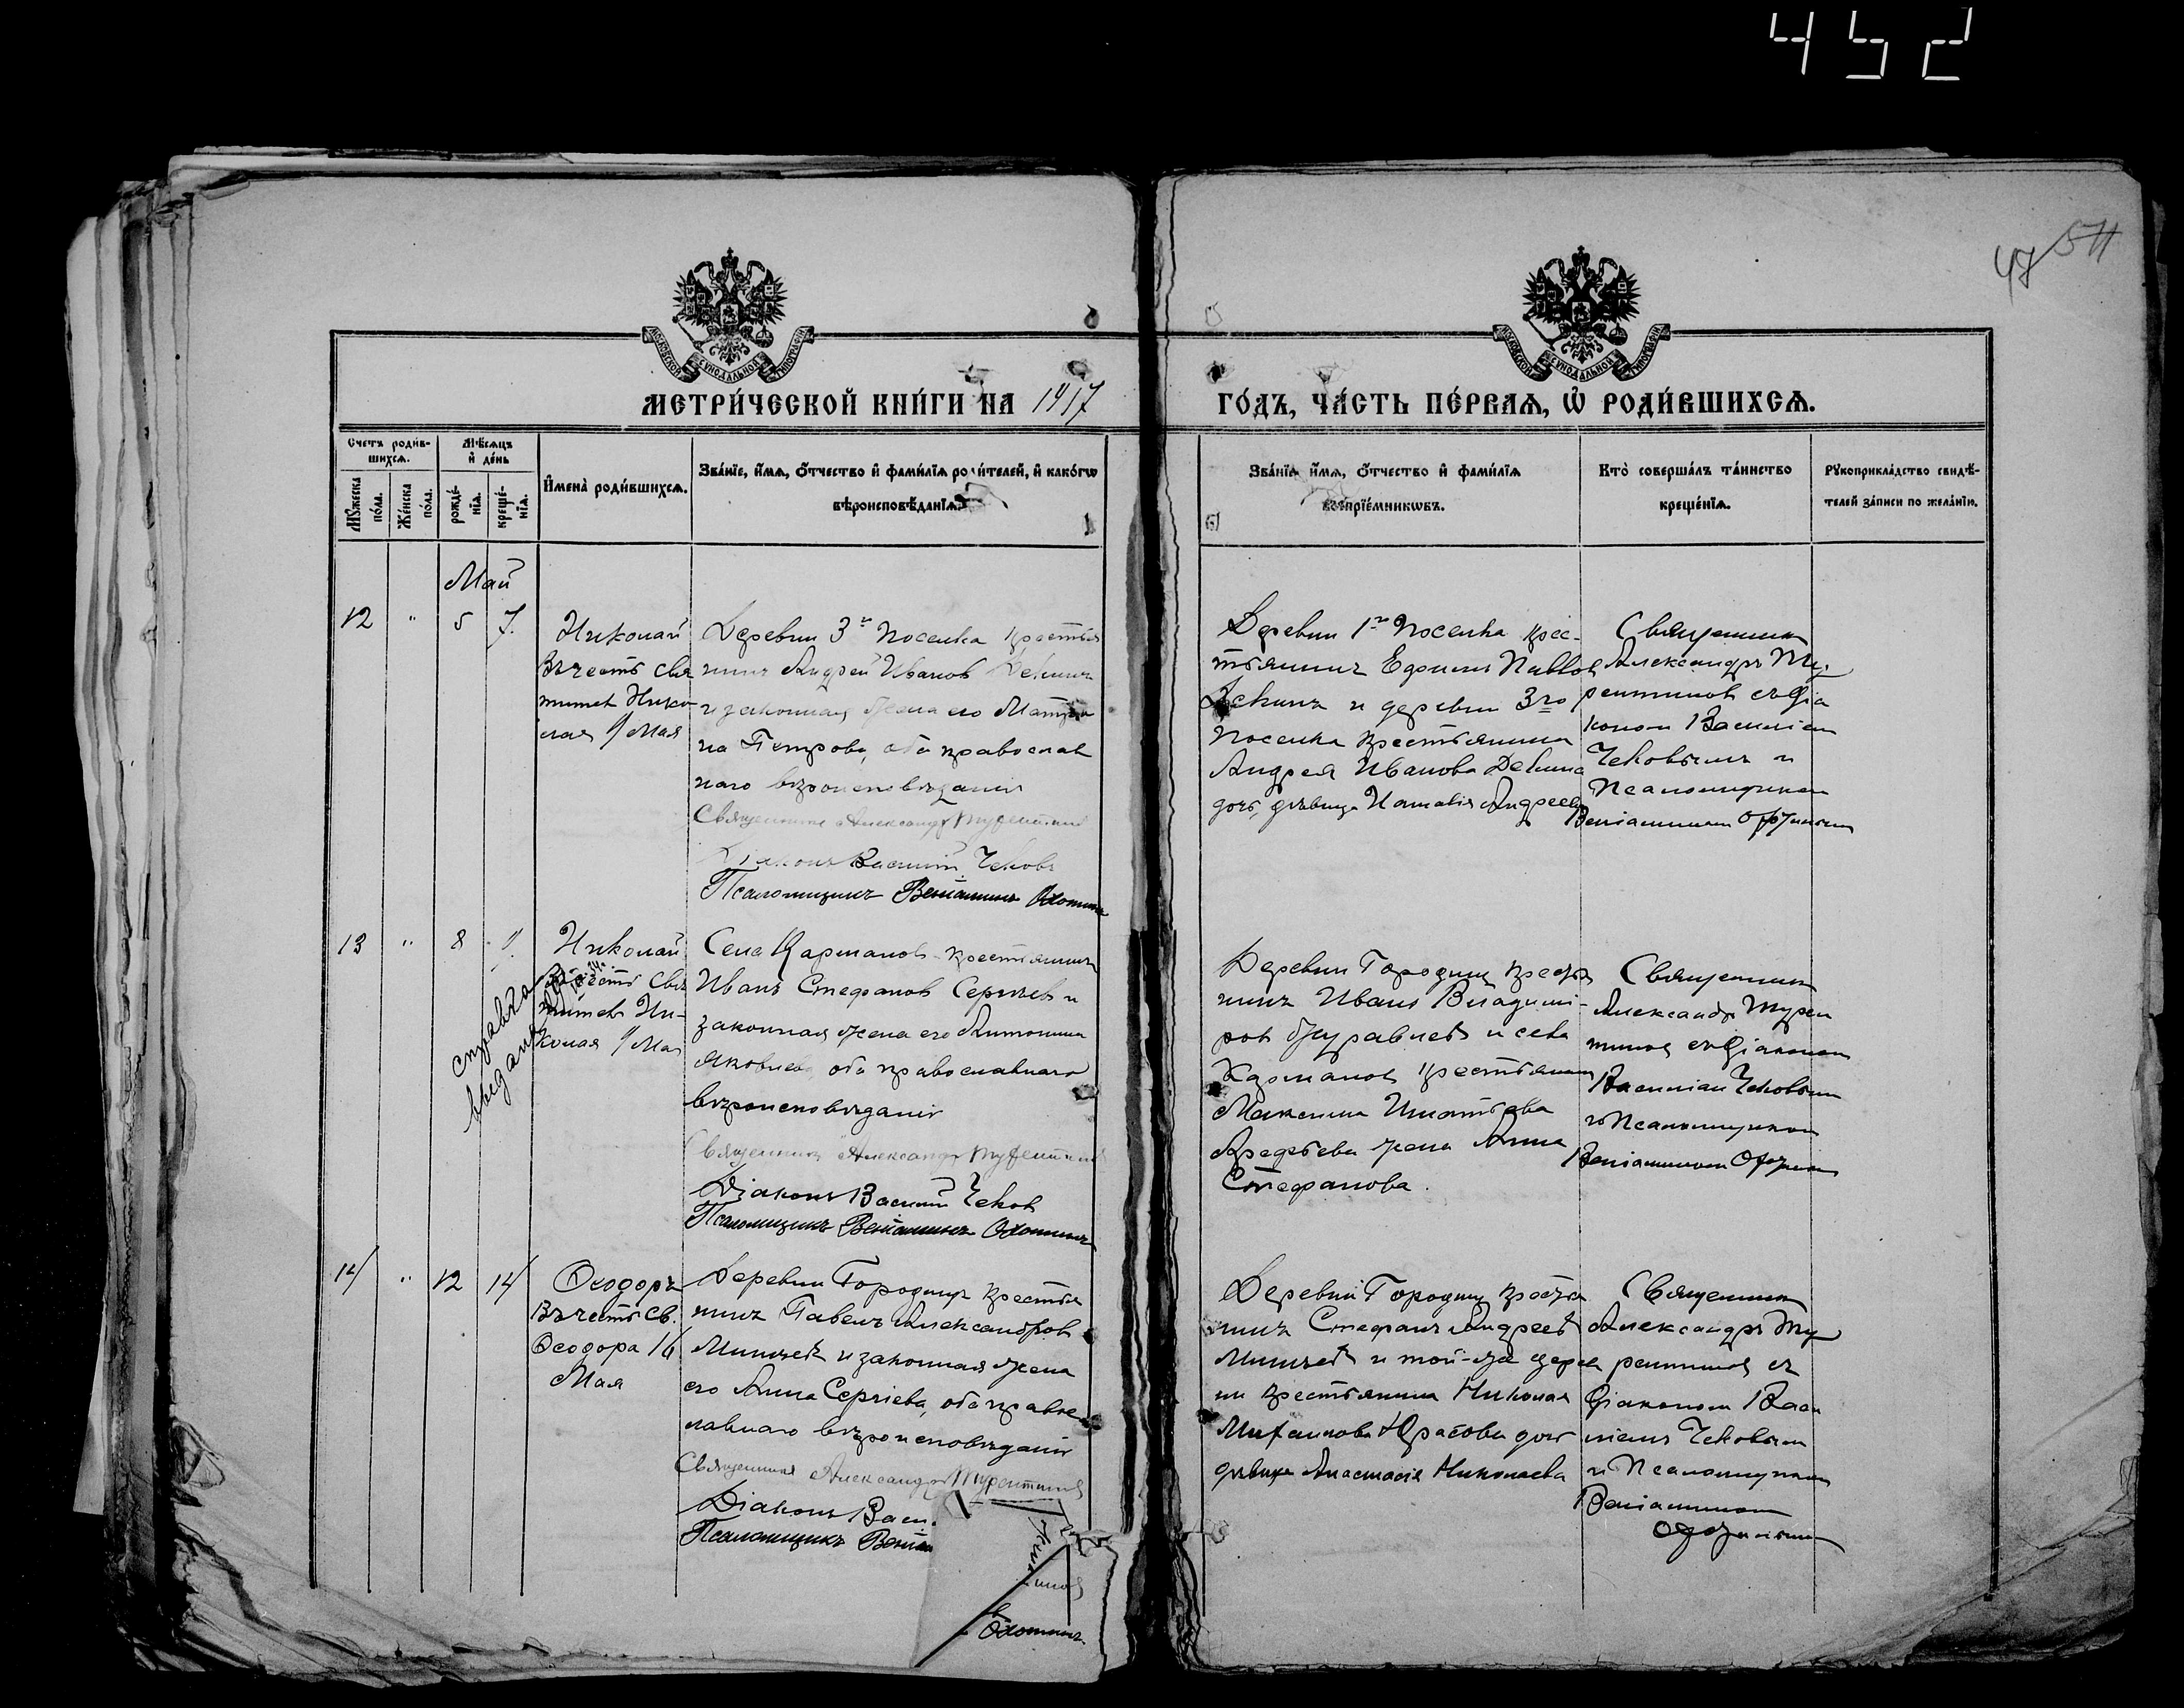 452
47 571
МОСКОВСКОЙ СѴНОДАЛЬНОЙ ТИПОГРАФІИ
МОСКОВСКОЙ СѴНОДАЛЬНОЙ ТИПОГРАФІИ
МЕТРИ́ЧЕСКОЙ КНИ́ГИ НА 1917
ГО́ДЪ, ЧА́СТЬ ПЕ́РВАѦ, Ѡ҆ РОДИ́ВШИХСѦ.
Счетъ роди́в-
шихсѧ.
Мѣ́сѧцъ
и҆ де́нь
Мꙋ́жеска
по́ла.
Же́нска
по́ла.
рожде́-
нїѧ.
креще́-
нїѧ.
И҆мена̀ роди́вшихсѧ.
Зва́нїе, и҆́мѧ, ѻ҆́тчество и҆ фами́лїѧ роди́телей, и҆ како́гѡ
вѣроисповѣ́данїѧ.
Зва́нїе и҆́мѧ, ѻ҆́тчество и҆ фами́лїѧ
воспрїе́мникѡвъ.
Кто̀ соверша́лъ та́инство
креще́нїѧ.
Рꙋкоприкла́дство свидѣ́-
телей за́писи по жела́нїю.
Май
12 " 5 7.
Николай
Въ честь свя
тителя Нико-
лая 9 Мая
Деревни 3го Поселка крестья
нинъ Андрей Иванов Декинъ
и законная жена его Матро
на Петрова, оба православ
наго вѣроисповѣданія
Священникъ Александръ Турентинов
Діаконъ Василій Чековъ
Псаломщикъ Веніаминъ Охотинъ
Деревни 1го Поселка крес-
тьянинъ Ефимъ Павлов
Декинъ и деревни 3го
Поселка крестьянина
Андрея Иванова Декина
дочь, дѣвица Наталія Андреева
Священник
Александръ Ту-
рентинов съ діа
коном Василіем
Чековымъ и
Псаломщиком
Веніамином
13 " 8 9.
справка
выдана
Николай
Въ честь свя
тителя Ни-
колая 9 Мая
Села Карманов крестьянинъ
Иванъ Стефанов Сергѣев и
законная жена его Антонина
Яковлева, оба православнаго
вѣроисповѣданія
Священникъ Александръ Турентинов
Діаконъ Василій Чеков
Псаломщикъ Веніаминъ Охотинъ
Деревни Городищ крестья
нинъ Иванъ Владими-
ров Журавлев и села
Карманов крестьянина
Максима Игнатьева
Арефьева жена Анна
Стефанова.
Священник
Александръ Турен
тинов съ діаконом
Василіем Чековым
и Псаломщиком
Веніамином
14 " 12 14
Ѳеодоръ
Въ честь св.
Ѳеодора 16
Мая
Деревни Городищ крестья
нинъ Павелъ Александров
Минѣев и законная жена
его Анна Сергіева, оба правос
лавнаго вѣроисповѣданія
Священник Александръ Турентинов
Діаконъ Васи
Псаломщикъ Веніам
Охотинъ.
Деревни Городищ крестья
нинъ Стефанъ Андреев
Минѣев и той-же дерев
ни крестьянина Николая
Михаилова Юрасова дочь
дѣвица Анастасія Николаева
Священник
Александръ Ту
рентинов съ
діаконом Васи
ліемъ Чековым
и Псаломщиком
Веніамином